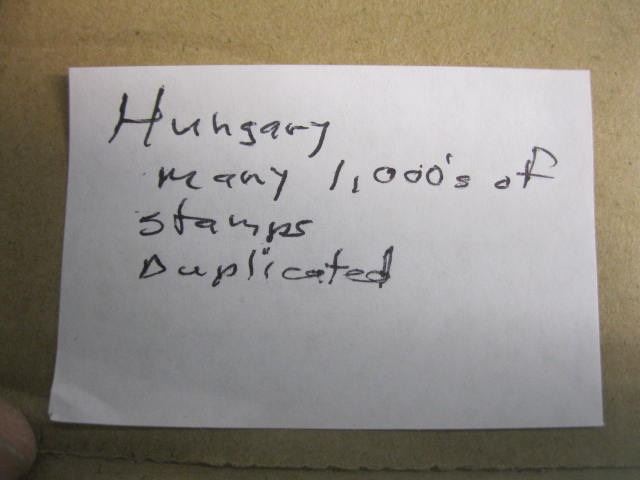 Hungary
many 1,000's of
stamps
Duplicated